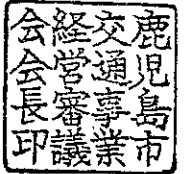 鹿児島市
交通事業
経営審議
会会長印